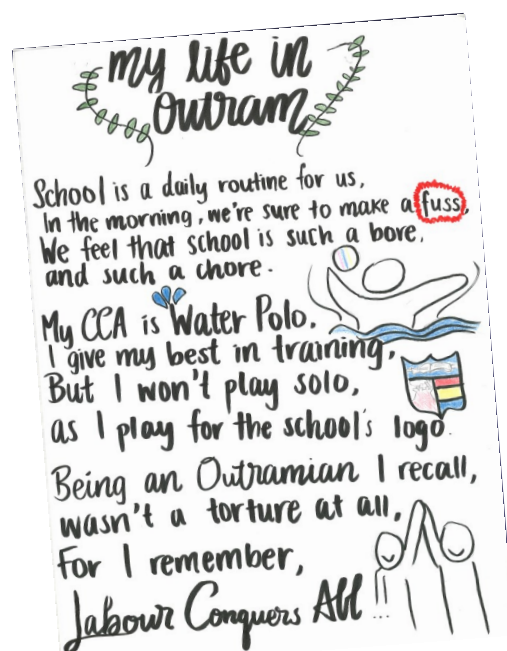 my life in
Outram
School is a daily routine for us,
In the morning, we're sure to make a fuss,
We feel that school is such a bore,
and such a chore.
My CCA is Water Polo.
I give my best in training,
But I won't play solo,
as I play for the school's logo.
Being an Outramian I recall,
wasn't a torture at all,
For I remember,
Labour Conquers All
...